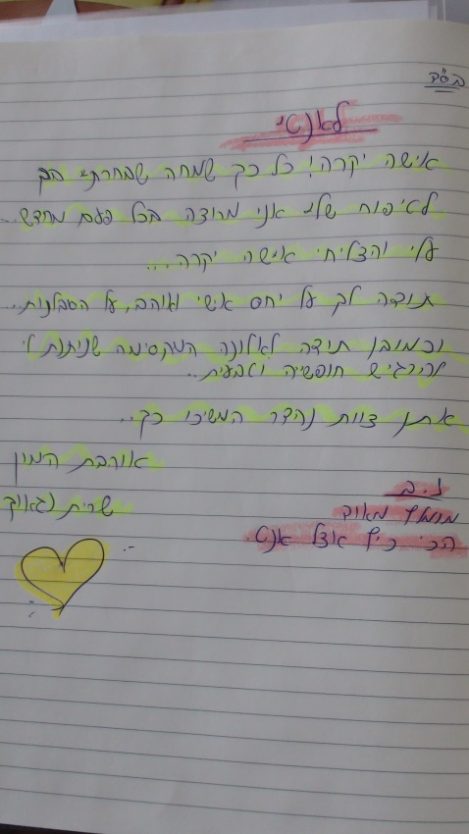 בס"ד
לאנסי
אישה יקרה! כל כך שמחה שבחרתי בך
לאיפוח שלי אני מרוצה בכל פעם מחדש..
עלי והצליחי אישה יקרה...
תודה לך על יחס אישי ואוהב, על הסבלנות..
וכמובן תודה לאלונה המקסימה שנותנת לי
להרגיש חופשיה וטבעית..
אתן צוות נהדר המשיכו כך..
אוהבת המון
שרית
נ.ב
מומלץ מאוד
הכי כיף אצל אנסי